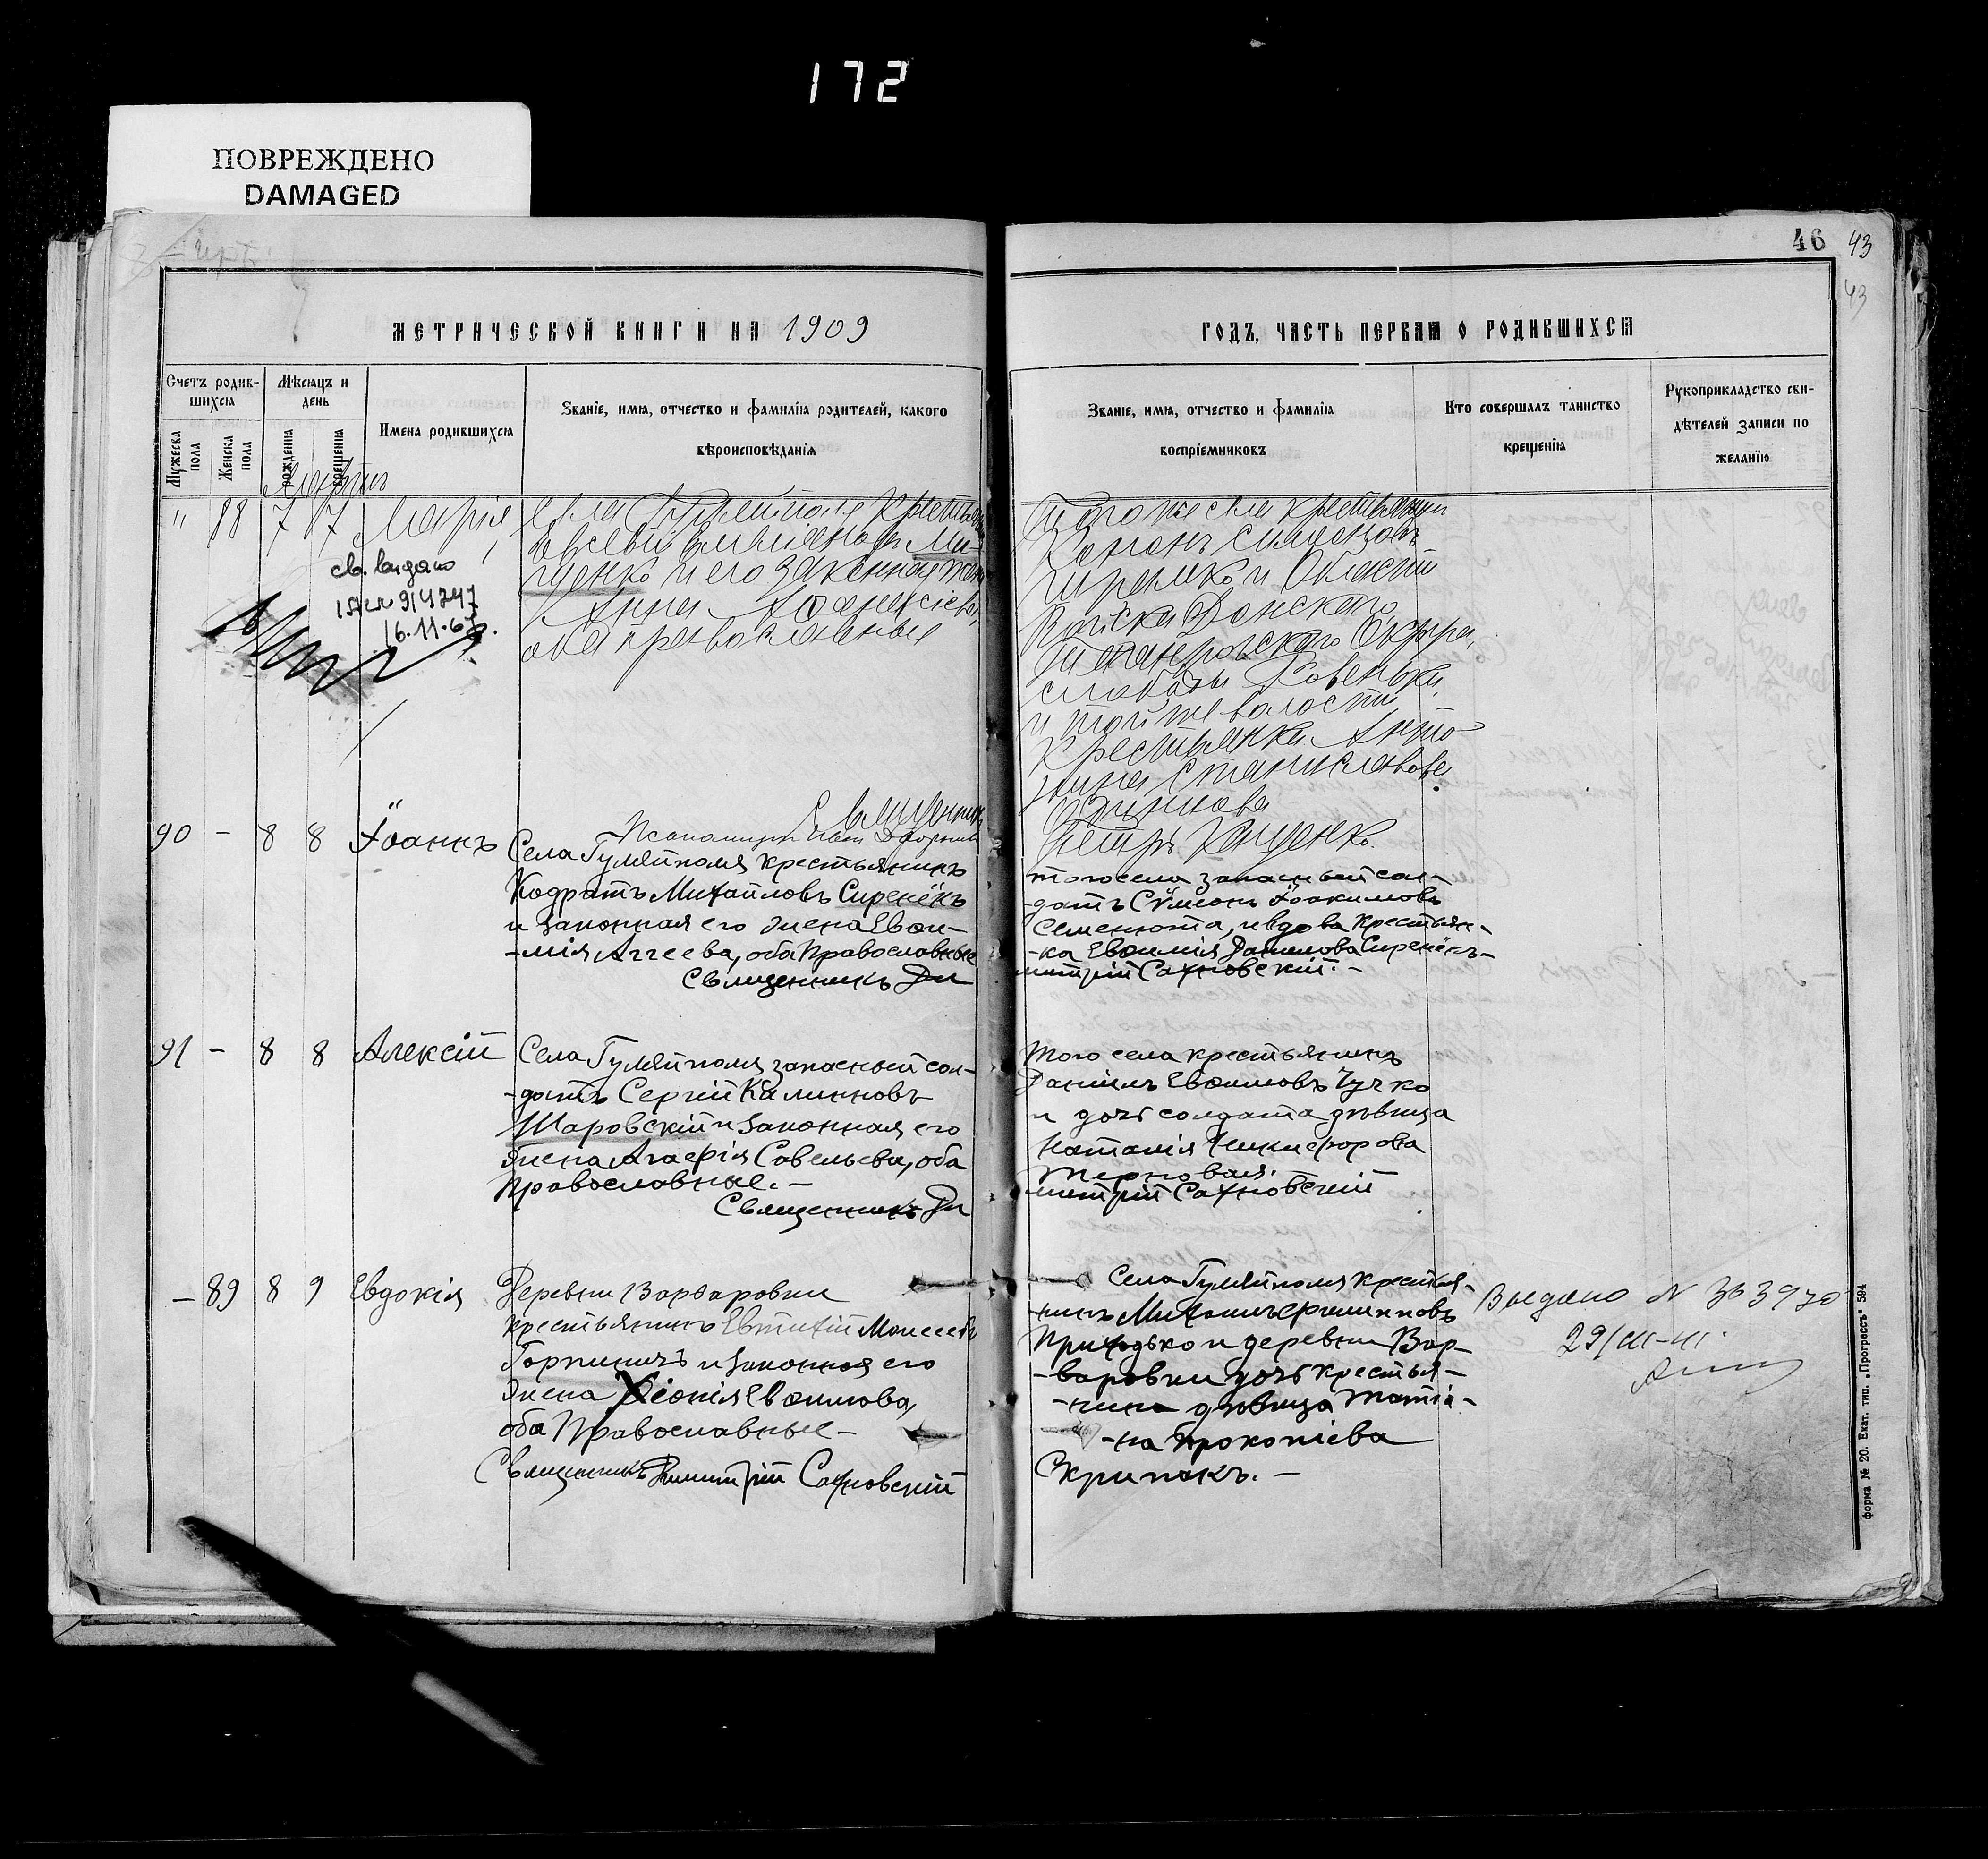 172
ПОВРЕЖДЕНО
DAMAGED
46 43
43
МЕТРИЧЕСКОЙ КНИГИ НА 1909
ГОДЪ, ЧАСТЬ ПЕРВАЯ О РОДИВШИХСЯ
Счетъ родив-
шихся
Мѣсяцъ и
день
Мужеска
пола
Женска
пола
рожденія
крещенія
Имена родившихся
Званіе, имя, отчество и фамилія родителей, какого
вѣроисповѣданія
Званіе, имя, отчество и фамилія
воспріемниковъ
Кто совершалъ таинство
крещенія
Рукоприкладство сви-
дѣтелей записи по
желанію
Мартъ
" 88 7 7 Марія
Села Гуляйполя крестьян
и его законная жена
Анна
оба православные
св. выдано
16.11.67
Того же села крестьянин
Конон
и Области
Войска Донскаго
Таганрогскаго Округа,
слободы Ровеньки,
и той же волости
крестьянка Анто-
нина Станиславова
Священник
Псаломщик Иван
Петръ
90 - 8 8 Іоаннъ
Села Гуляйполя крестьянинъ
Кодратъ Михайловъ Сиренёкъ
и законная его жена Евѳи-
-мія Аггеева, оба Православные
Священникъ Ди
того села запасный сол-
-датъ Сѵмеонъ Іоакимовъ
Семенюта, и вдова крестьян-
-ка Евѳимія Данилова Сиренёкъ-
митрій Сахновскій.-
91 - 8 8 Алексій
Села Гуляйполя запасный сол-
-датъ Сергій Калинновъ
Шаровскій и законная его
жена Агафія Савельева, оба
Православные.-
Священникъ Ди
того села крестьянинъ
Даніилъ Евѳимовъ Чучко
и дочь солдата дѣвица
Наталія Никифорова
Терновая.
митрій Сахновскій
- 89 8 9 Евдокія
Деревни Варваровки
крестьянинъ Евтихій Моисеевъ
Горпиничъ и законная его
жена Хіонія Евѳимова,
оба Православные-
Священникъ Димитрій Сахновскій
Села Гуляйполя крестья-
-нинъ Михаилъ Филипповъ
Приходько и деревни Вар-
-варовки дочь крестья-
-нина дѣвица Татіа-
-на Прокопіева
Скрипакъ.-
Выдано N 363970
29/III-41.
форма № 20. Екат. тип. „Прогрессъ" 594